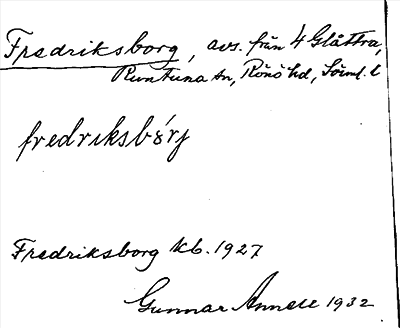 Fredriksborg, avs. från 4 Glåttra,
Runtuna sn, Rönö hd, Söml. l
fredriksbórj
Fredriksborg kb. 1927
Gunnar Annell 1932